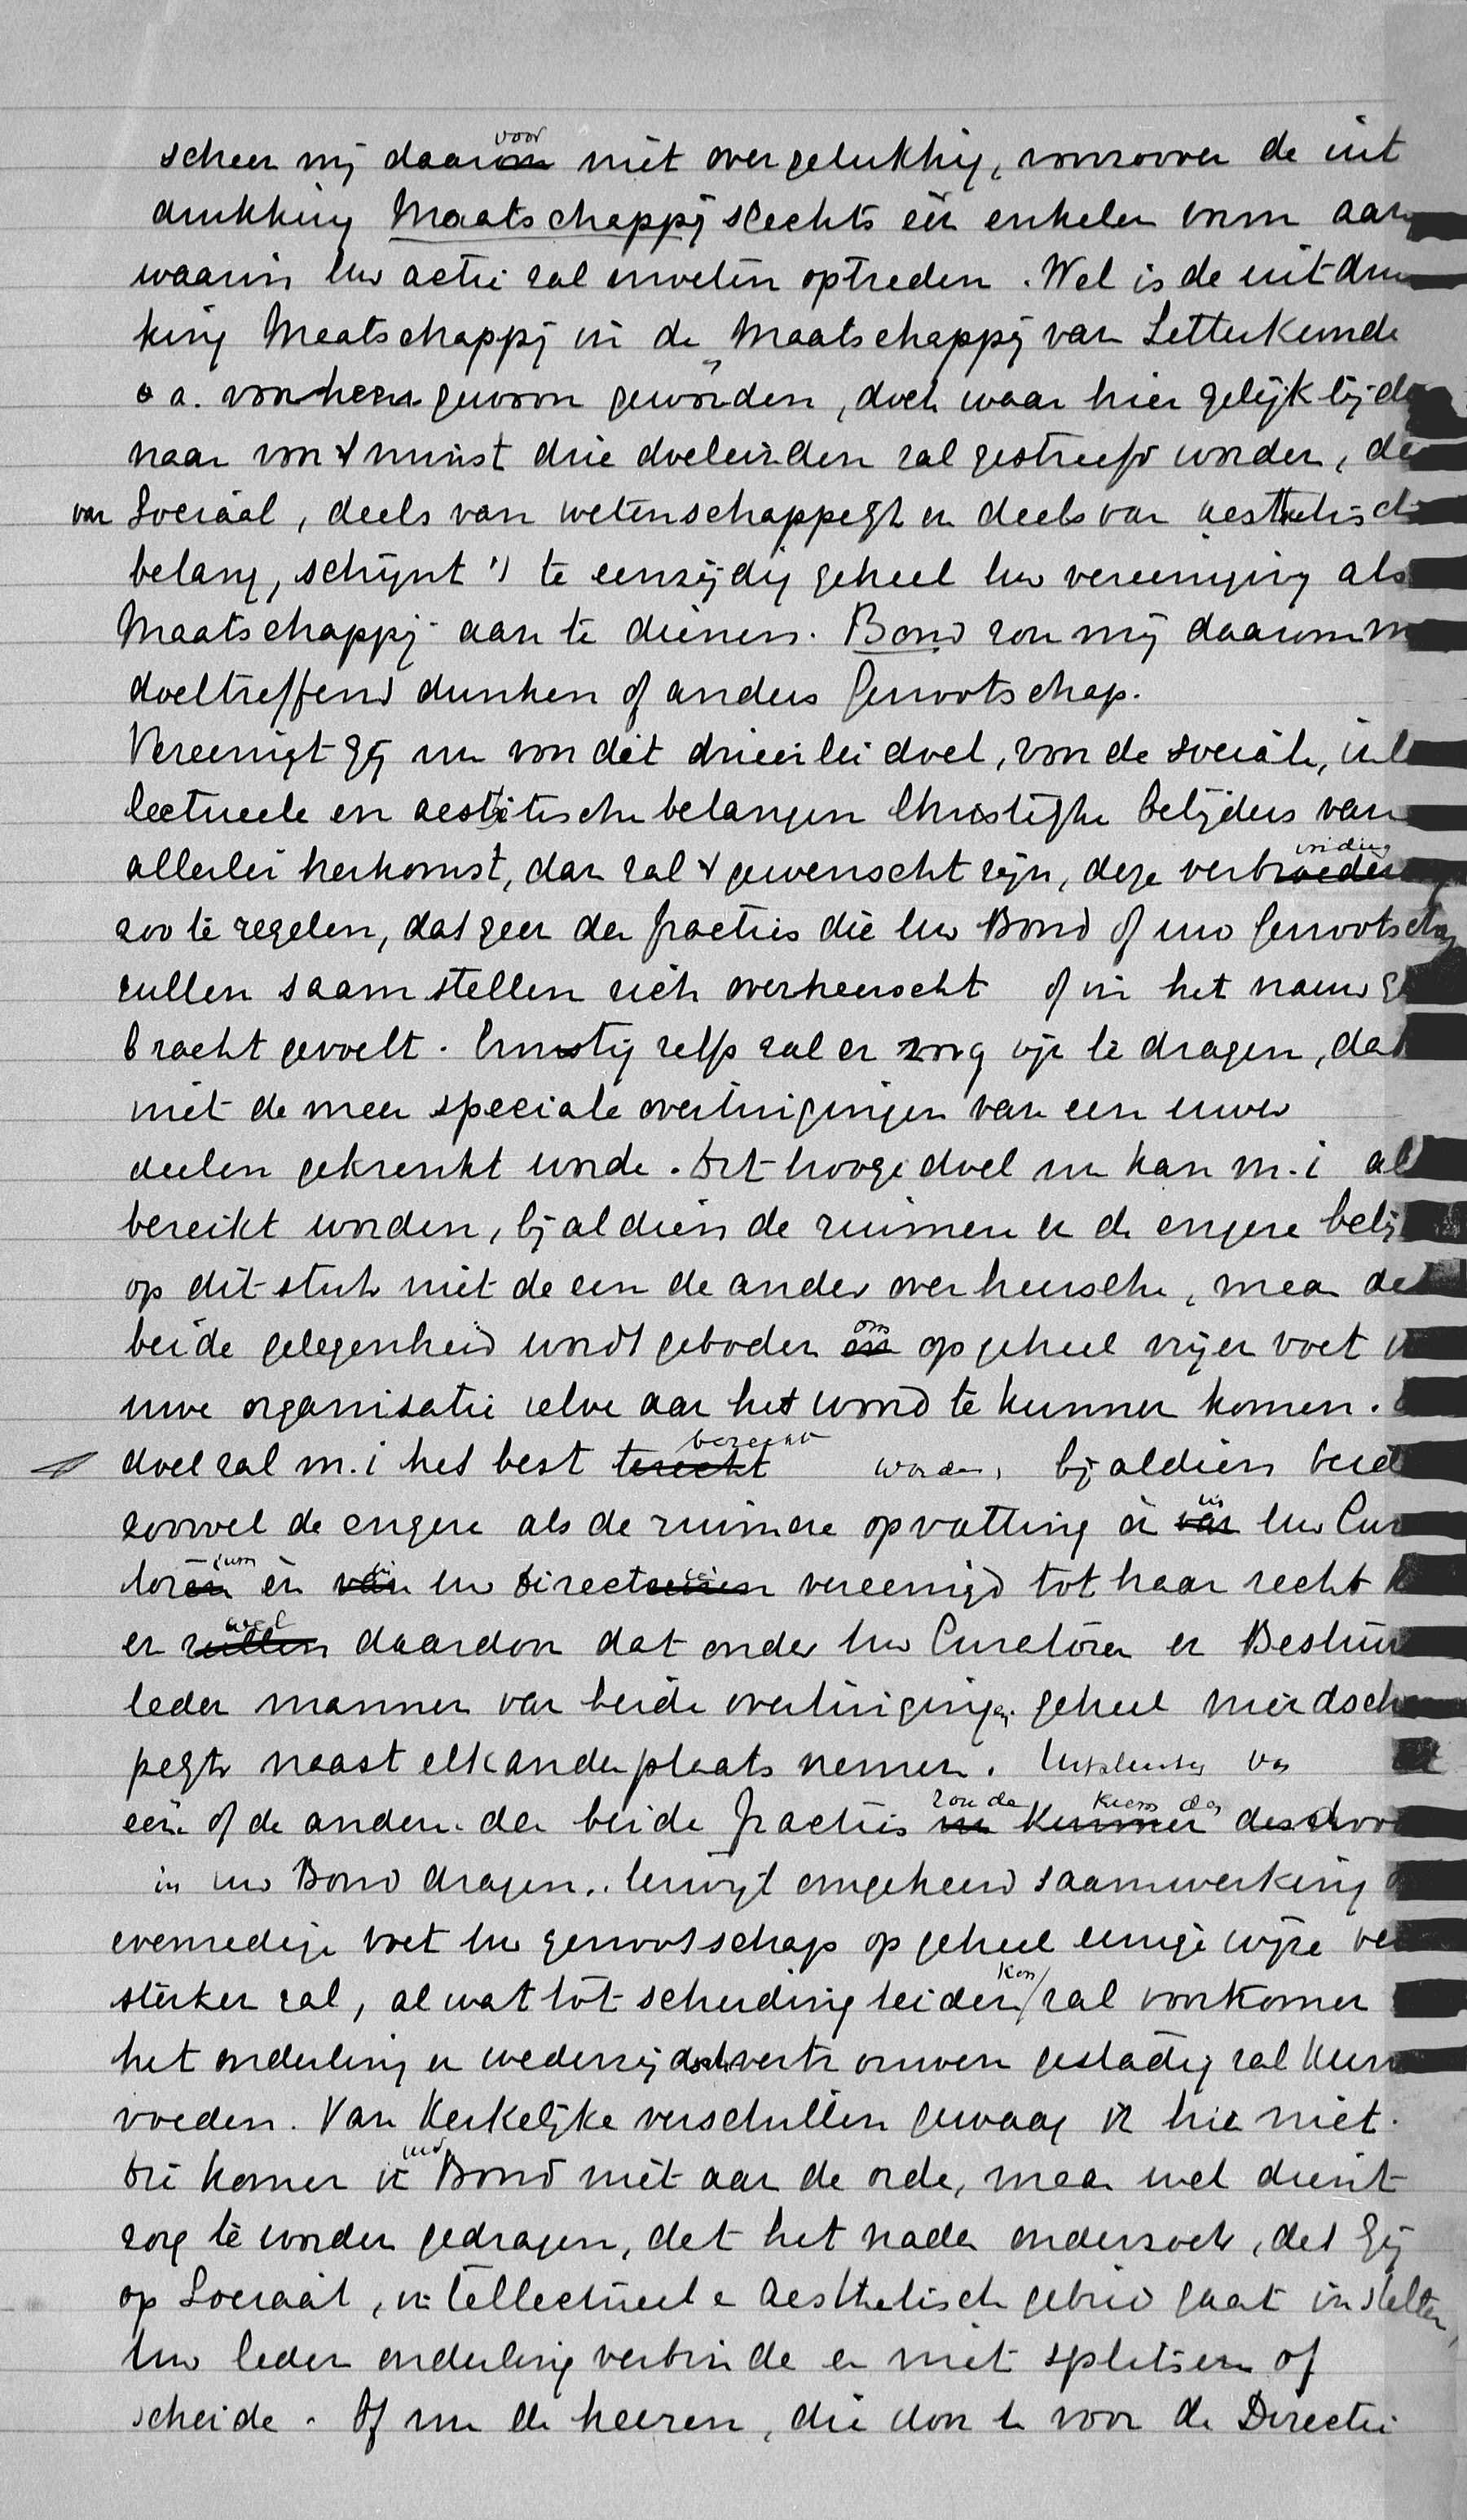 scheen mij daarvoor niet overgelukkig, voorzoover de uit
drukking Maatschappij slechts één enkelen vorm aan
waarin Uw actie zal moeten optreden. Wel is de uitdru
king Maatschappij in de Maatschappij van Letterkunde
o a. voorheen gewoon geworden, doch waar hier gelijktijdig
naar voor 't minst drie doeleinden zal gestreefd worden, de
van Sociaal, deels van wetenschappelijk en deels van aesthetisch
belang, schijnt 't te eenzijdig geheel Uw vereeniging als
Maatschappij aan te dienen. Bond zou mij daarom m
doeltreffend dunken of anders Genootschap.
Vereenigt gij nu voor dit drieërlei doel, voor de sociale, intel
lectueele en aesthetische belangen Christelijke belijders van
allerlei herkomst, dan zal 't gewenscht zijn, deze verbinding
zoo te regelen, dat geen der fracties die Uw Bond of uw Genootschap
zullen saamstellen zich overheerscht of in het nauw ge
bracht gevoelt. Ernstig zelfs zal er zorg op te dragen, dat
niet de meer speciale overtuigingen van een uwer
deelen gekrenkt worde. Dit hooge doel nu kan m.i al
bereikt worden, bijaldien de ruimere en de engere belij
op dit stuk niet de een de ander overheersche, maar de
beide gelegenheid wordt geboden om op geheel vrijen voet in
uwe organisatie zelve aan het woord te kunnen komen.
doel zal m.i het best bereikt worden, bijaldien beid
zoowel de engere als de ruimere opvatting in Uw Cura
torium en in Uw Directie vereenigd tot haar recht k
en wel daardoor dat onder Uw Curatoren en Bestuurs
leden mannen van beide overtuigingen geheel vriendschap
pelijk naast elkander plaats nemen. Uitsluiting van
een of de andere der beide fracties zou de kiem der
in Uw Bond dragen, terwijl omgekeerd saamwerking
evenredige voet Uw genootschap op geheel eenige wijze ver
sterken zal, al wat tot scheiding leiden kon zal voorkomen
het onderling en wederzijdsch vertrouwen gestadig zal kun
voeden. Van Kerkelijke verschillen gewaag ik hier niet.
Die komen in Uw Bond niet aan de orde, maar wel dient
zorg te worden gedragen, dat het nader onderzoek, dat Gij
op Sociaal, intellectueel en Aesthetisch gebied gaat instellen,
Uw leden onderling verbinde en niet splitsen of
scheide. Of nu de heeren, die door U voor de Directie